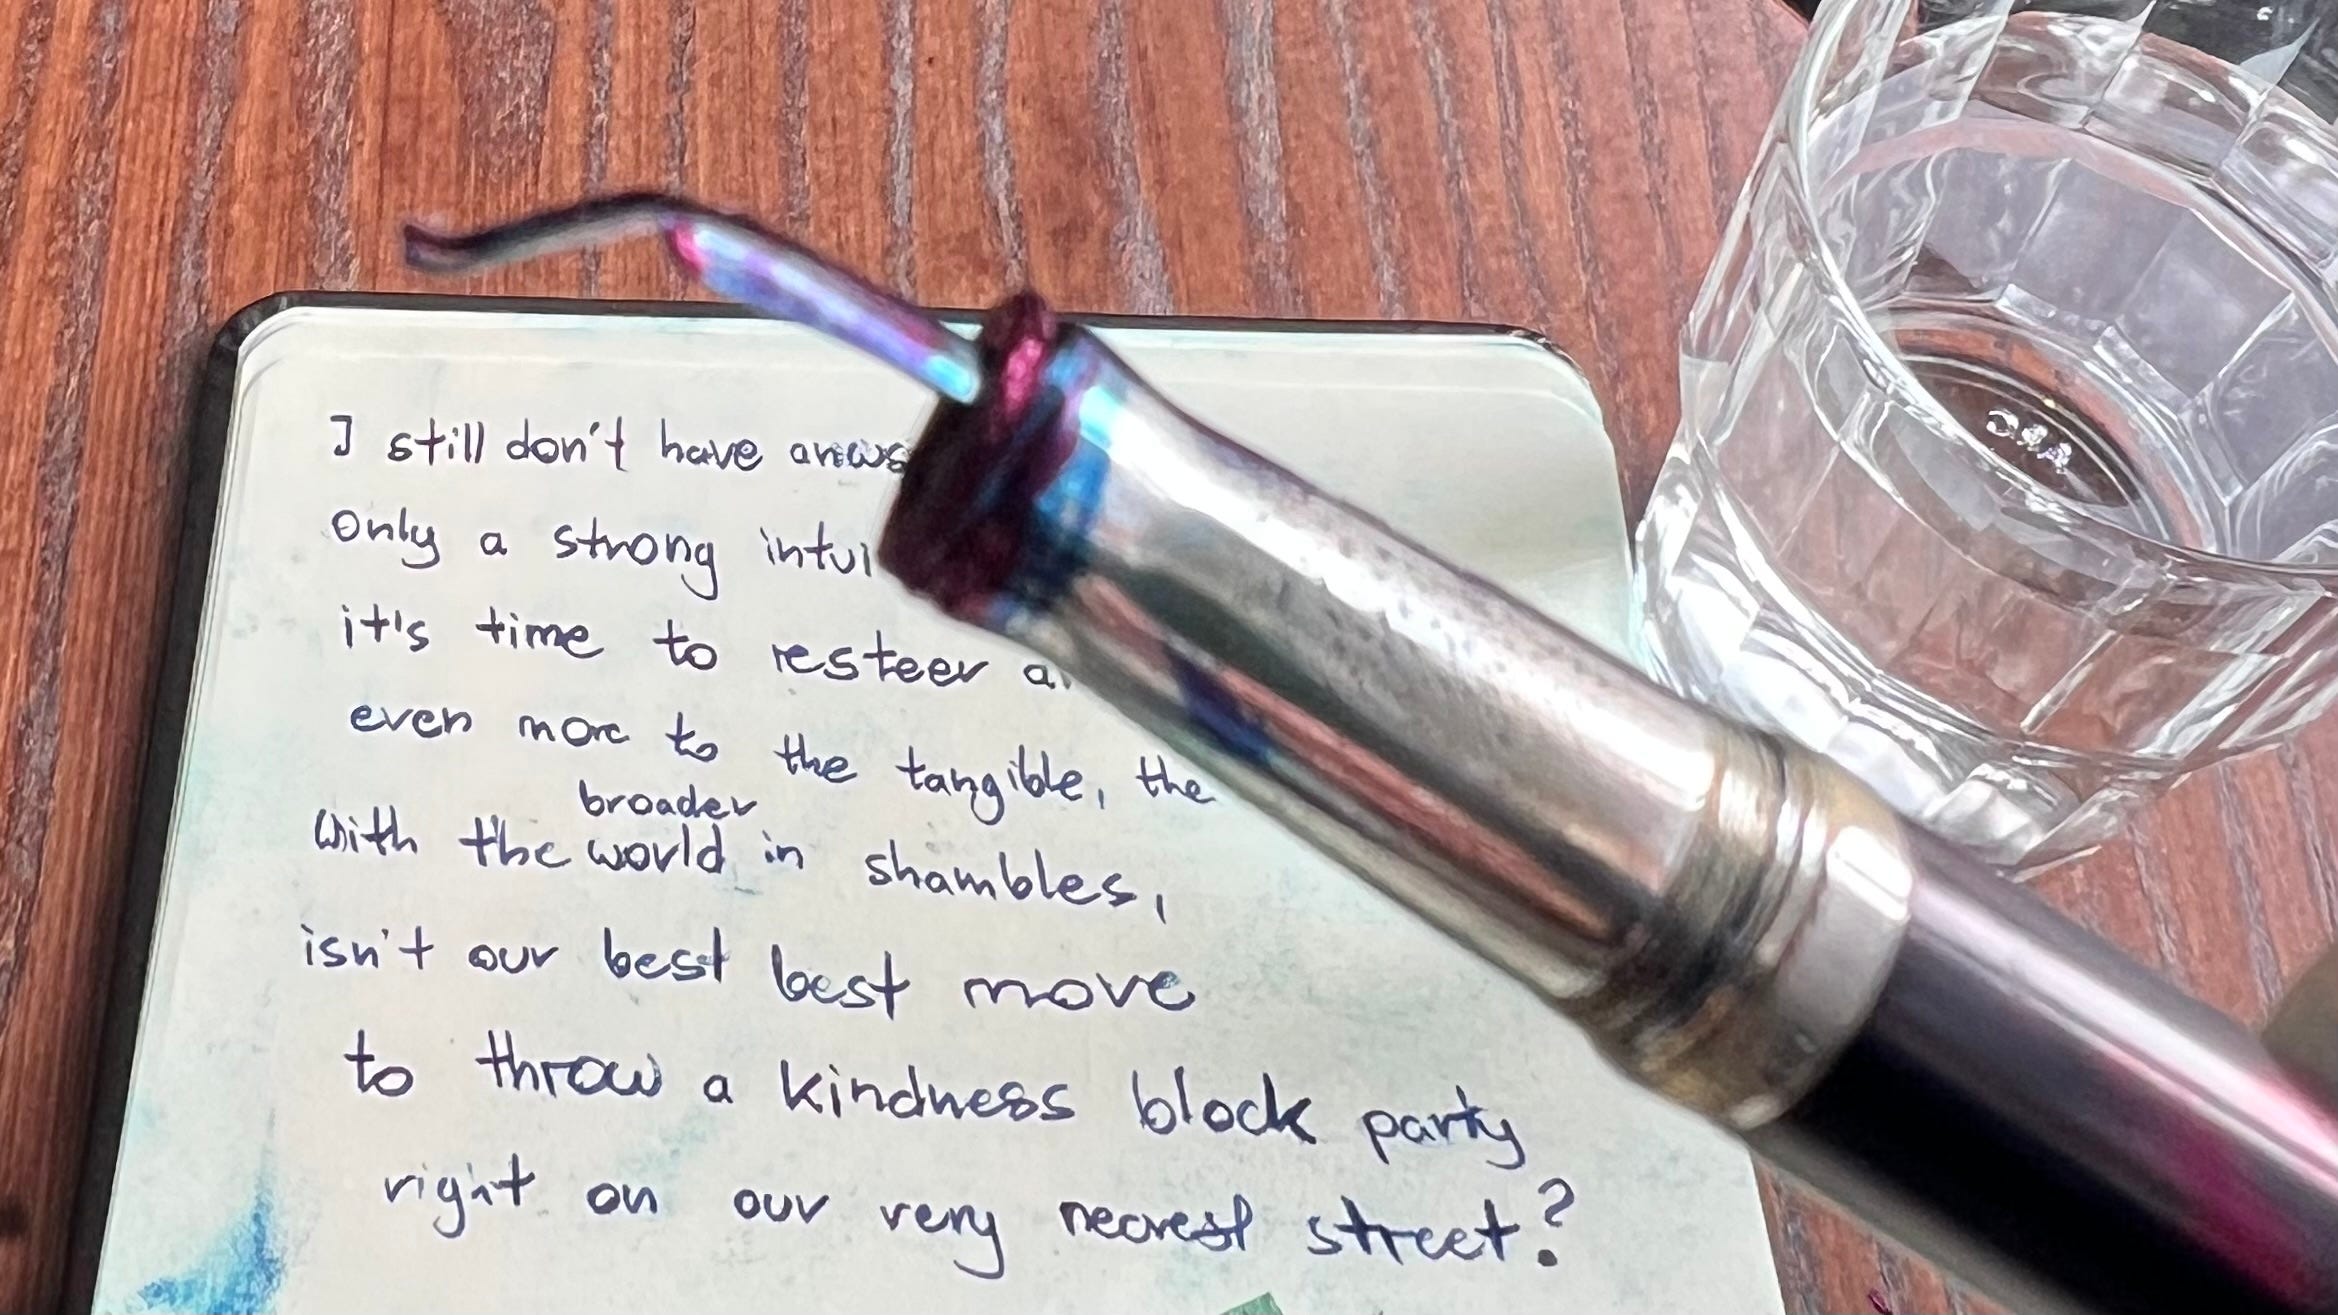 I still don't have
only a strong
it's time to resteer
even more to the tangible, the
broader
with the world in shambles,
isn't our best best move
to throw a kindness block party
right on our very nearest street?